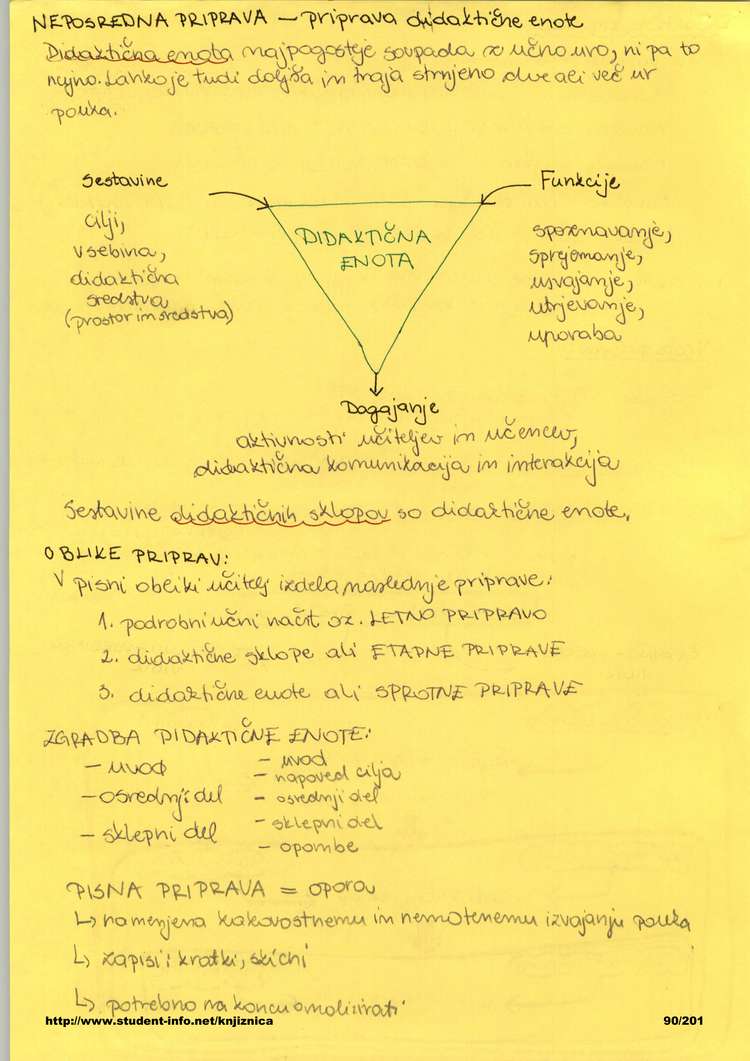 NEPOSREDNA PRIPRAVA – priprava didaktične enote
Didaktična enota najpogosteje sovpada z učno uro, ni pa to
nujno. Lahko je tudi daljša in traja strnjeno dve ali več ur
pouka.
Sestavine
Funkcije
cilji,
vsebina,
didaktična
sredstva
(prostor in sredstva)
DIDAKTIČNA
ENOTA
spoznavanje,
sprejemanje,
usvajanje,
utrjevanje,
uporaba
Dogajanje
aktivnosti učiteljev in učencev,
didaktična komunikacija in interakcija
Sestavine didaktičnih sklopov so didaktične enote.
OBLIKE PRIPRAV:
V pisni obliki učitelj izdela naslednje priprave:
1. podrobni učni načrt oz. LETNO PRIPRAVO
2. didaktične sklope ali ETAPNE PRIPRAVE
3. didaktične enote ali SPROTNE PRIPRAVE
ZGRADBA DIDAKTIČNE ENOTE:
– uvod
– osrednji del
– sklepni del
– uvod
– napoved cilja
– osrednji del
– sklepni del
– opombe
PISNA PRIPRAVA = opora
↳ namenjena kakovostnemu in nemotenemu izvajanju pouka
↳ zapisi: kratki, skicni
↳ potrebno na koncu analizirati
http://www.student-info.net/knjiznica
90/201